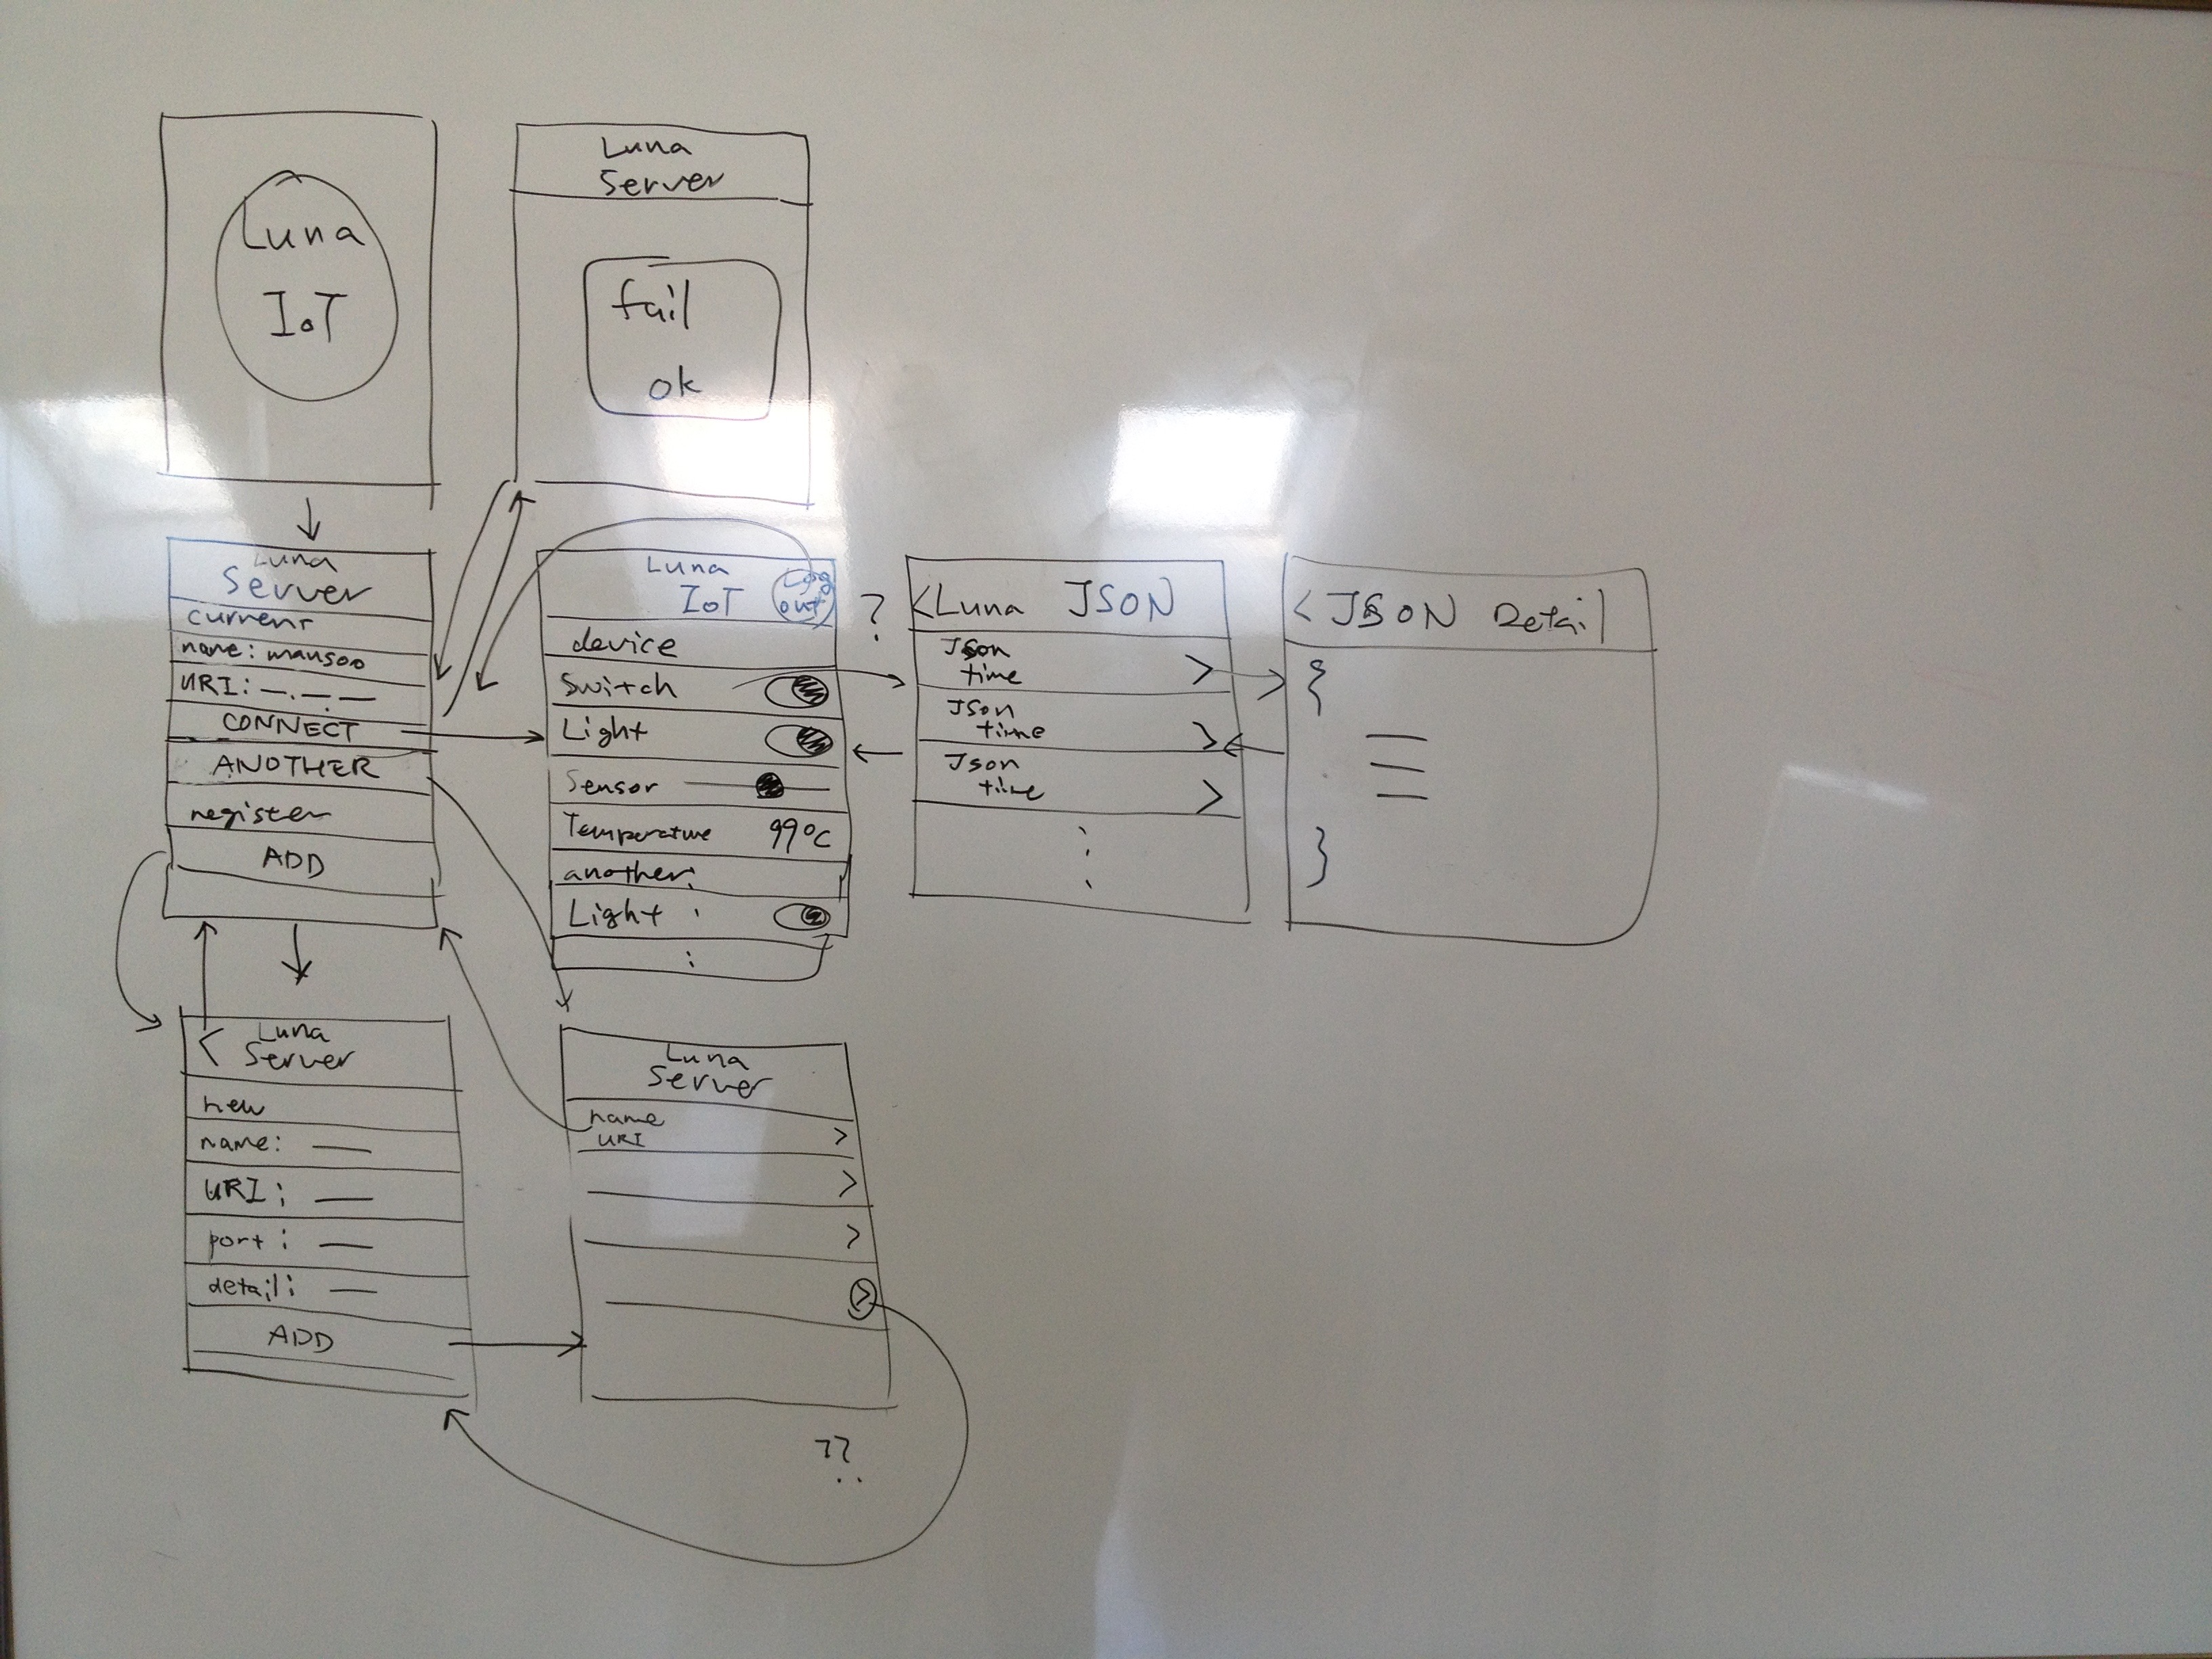 Luna
IoT
Luna
Server
fail
ok
Luna
Server
current
name: mansoo
URI: —.—.—
CONNECT
ANOTHER
register
ADD
Luna
IoT
Log
out
device
Switch
Light
Sensor
Temperature 99°C
another:
Light :
:
?
< Luna JSON
Json
time >
Json
time >
Json
time >
:
< JSON Detail
{
}
< Luna
Server
new
name: —
URI: —
port: —
detail: —
ADD
Luna
Server
name
URI >
>
>
>
??